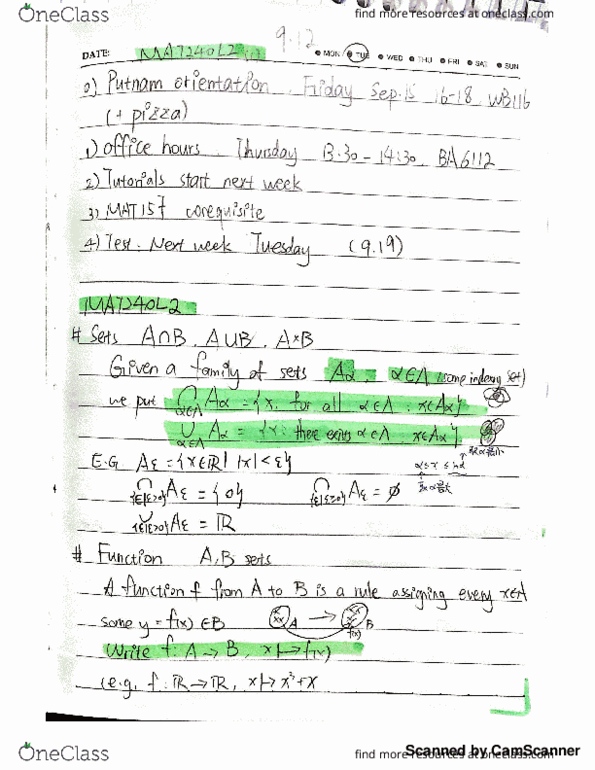 OneClass
find more resources at oneclass.com
9.12
DATE: MAT240L2 MON TUE WED THU FRI SAT SUN
0) Putnam orientation. Friday Sep.15 16-18. WB116
(+ pizza)
1) office hours. Thursday 13:30-14:30. BA6112
2) Tutorials start next week
3) MAT157 corequisite
4) Test. Next week Tuesday (9.19)
MAT240L2
# Sets A∩B. A∪B. A×B
Given a family of sets Aα, α∈Λ (some indexing set)
we put ∩α∈Λ Aα = {x: for all α∈Λ: x∈Aα}
∪α∈Λ Aα = {x: there exists α∈Λ: x∈Aα}
E.G Aε = {x∈ℝ| |x|<ε}
∩{ε|ε≥0} Aε = {0} ∩{ε|ε≥0} Aε = ∅
∪{ε|ε≥0} Aε = ℝ
# Function A,B sets
A function f from A to B is a rule assigning every x∈A
some y=f(x)∈B A → B f(x)
Write f: A→B, x↦f(x)
(e.g. f: ℝ→ℝ, x↦x³+x
Scanned by CamScanner
OneClass
find more resources at oneclass.com